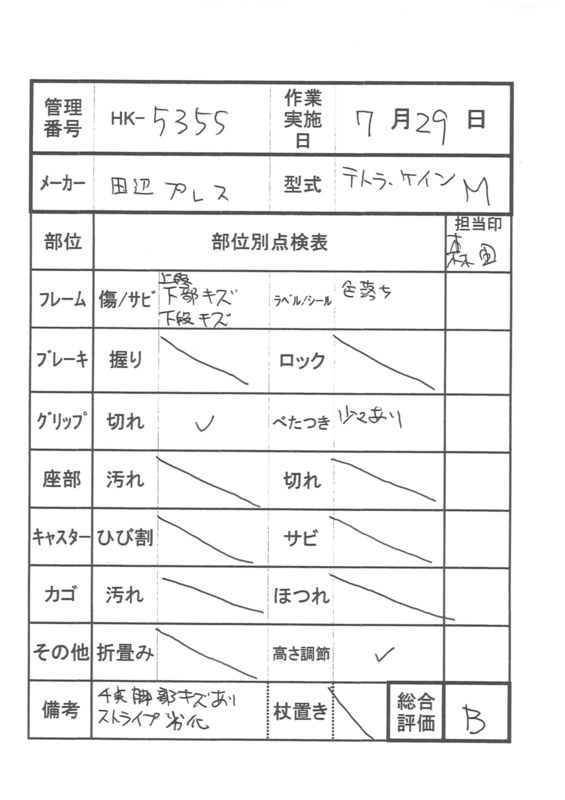 管理番号 HK-5355 作業実施日 7月29日
メーカー 田辺プレス 型式 テトラ・ケイン M
部位 部位別点検表 担当印 森田
フレーム 傷/サビ 上段 下部キズ 下段キズ ラベル/シール 色落ち
ブレーキ 握り ロック
グリップ 切れ ✓ べたつき 少々あり
座部 汚れ 切れ
キャスター ひび割 サビ
カゴ 汚れ ほつれ
その他 折畳み 高さ調節 ✓
備考 脚部キズあり 杖置き 総合評価 B
ストライプ劣化